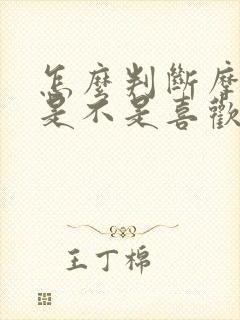 怎麼判斷摩
是不是喜歡
王丁棉